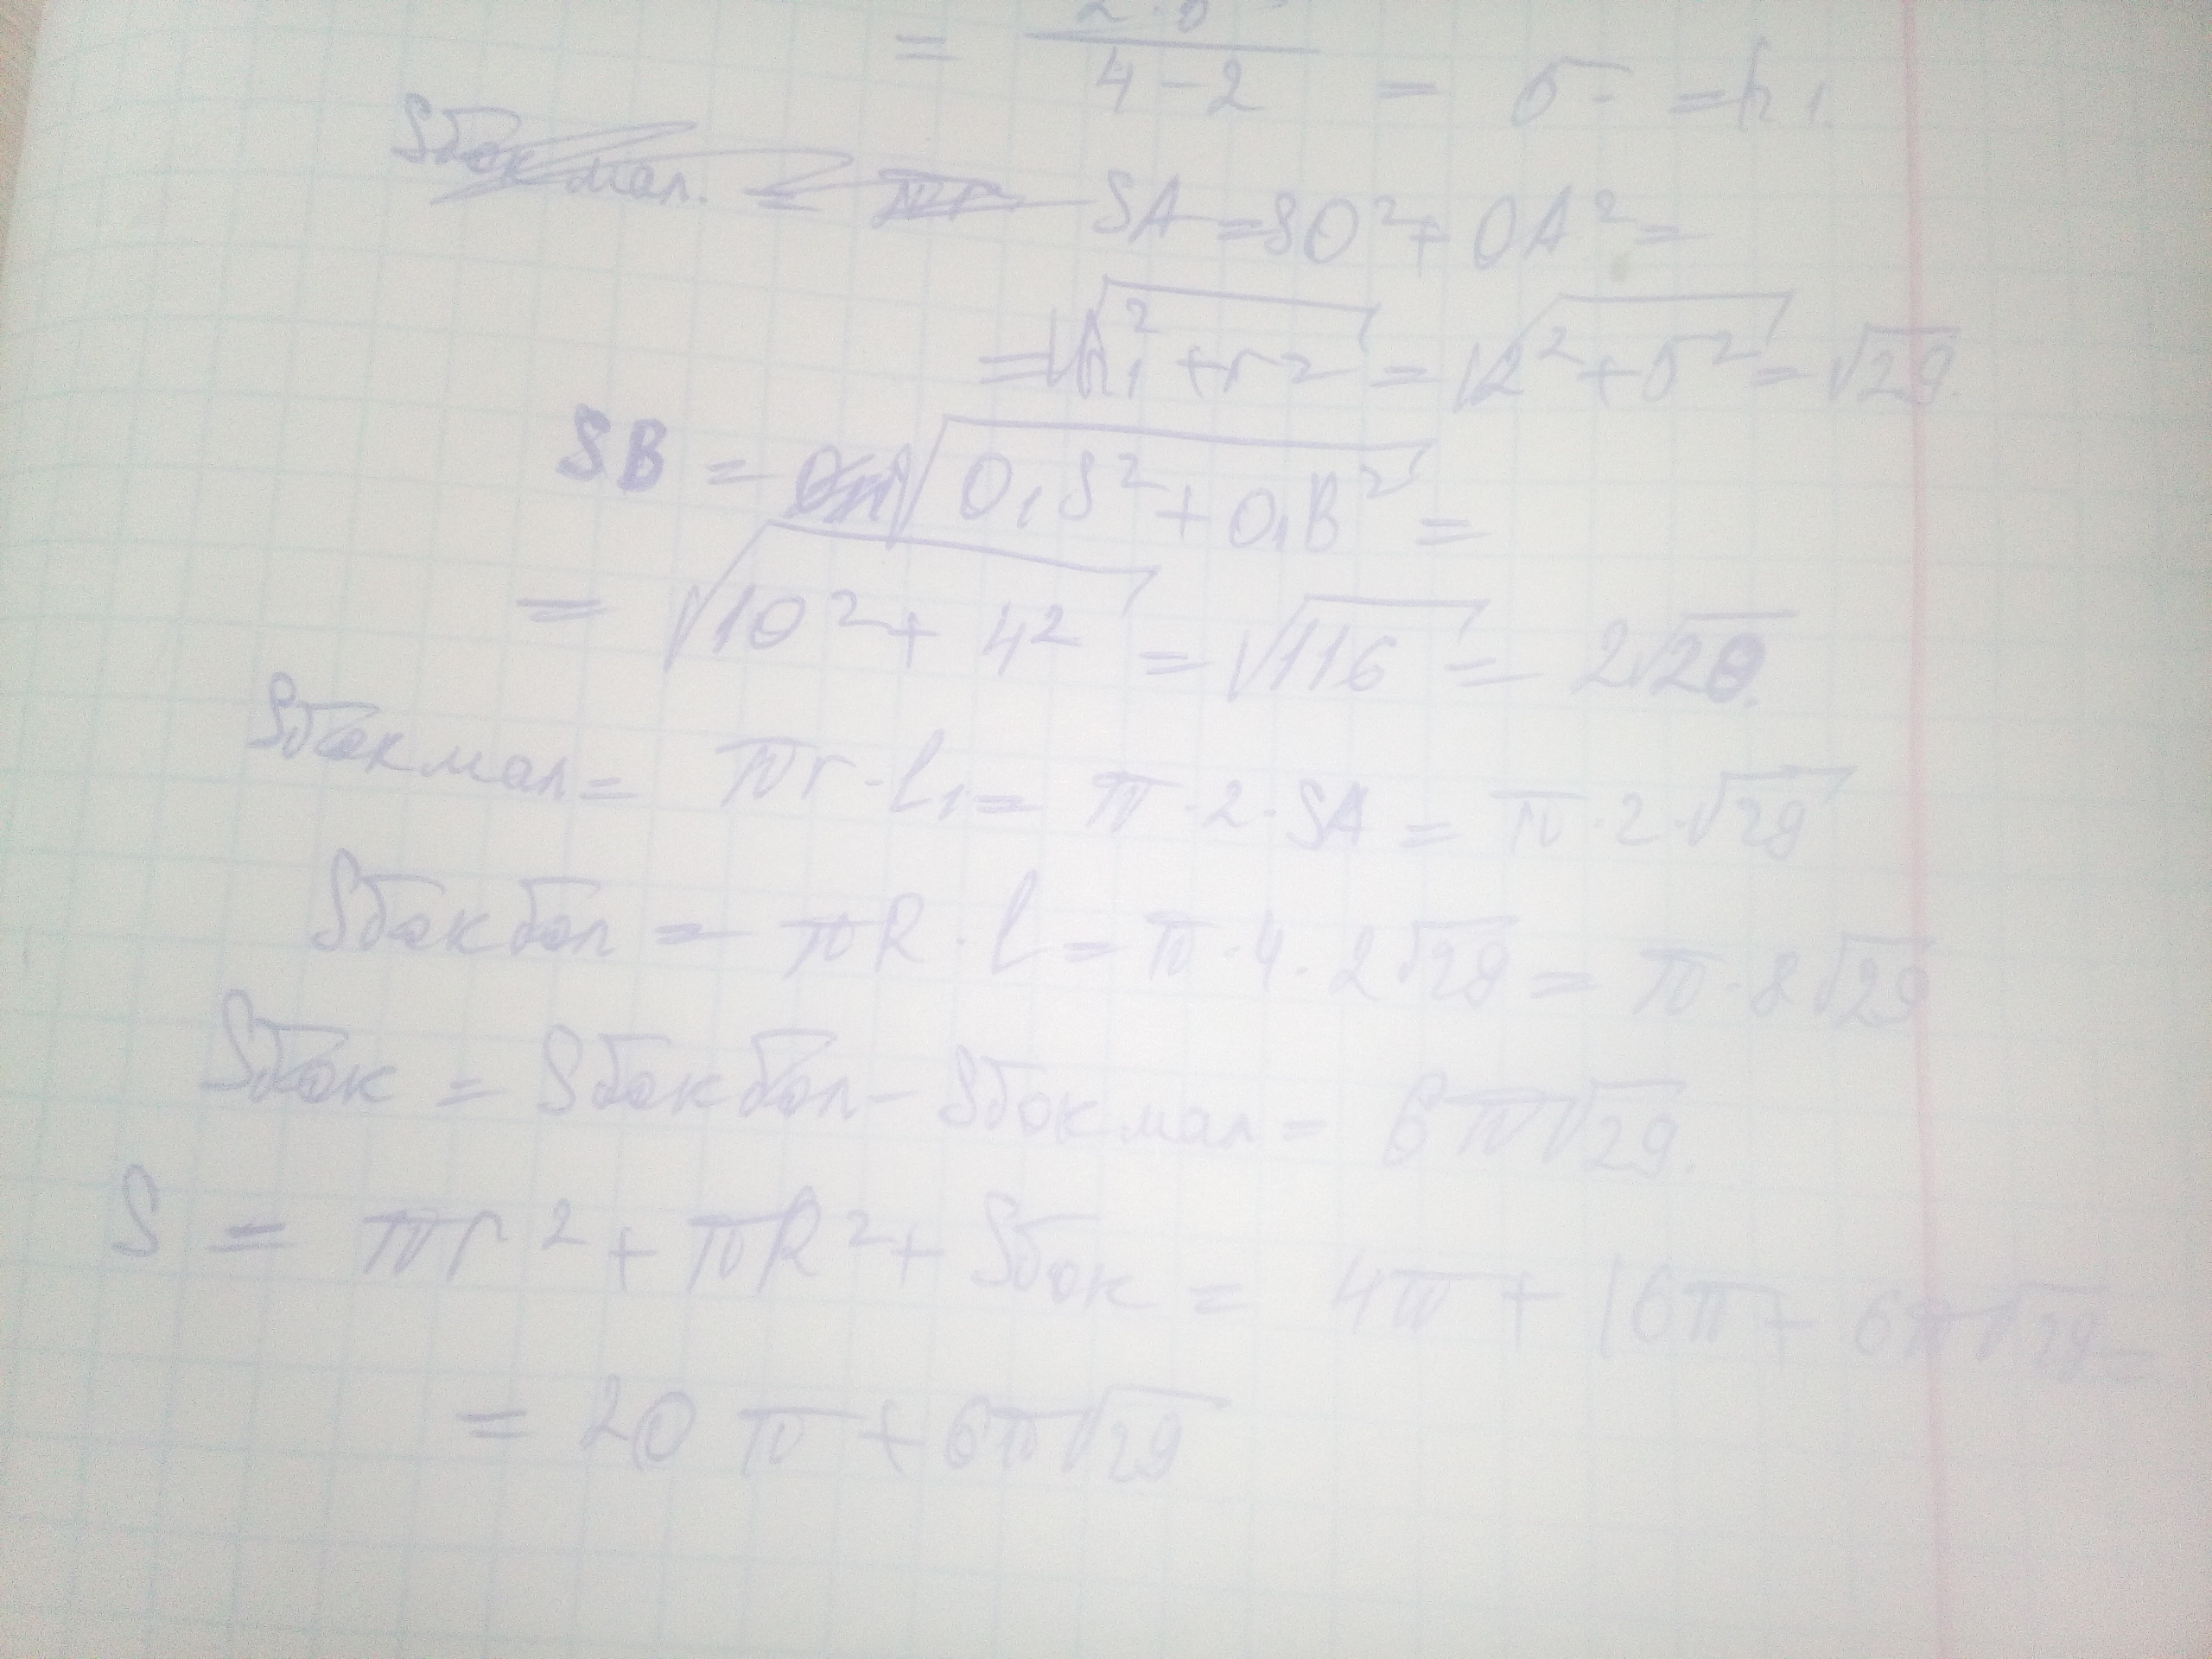 = 2·5 / 4-2 = 5 = h₁.
SA = SO² + OA² =
= √h₁² + r² = √2² + 5² = √29.
SB = √O₁S² + O₁B² =
= √10² + 4² = √116 = 2√29.
Sбок мал = πr · l₁ = π · 2 · SA = π · 2 · √29
Sбок бол = πR · l = π · 4 · 2√29 = π · 8√29
Sбок = Sбок бол - Sбок мал = 6π√29.
S = πr² + πR² + Sбок = 4π + 16π + 6π√29 =
= 20π + 6π√29